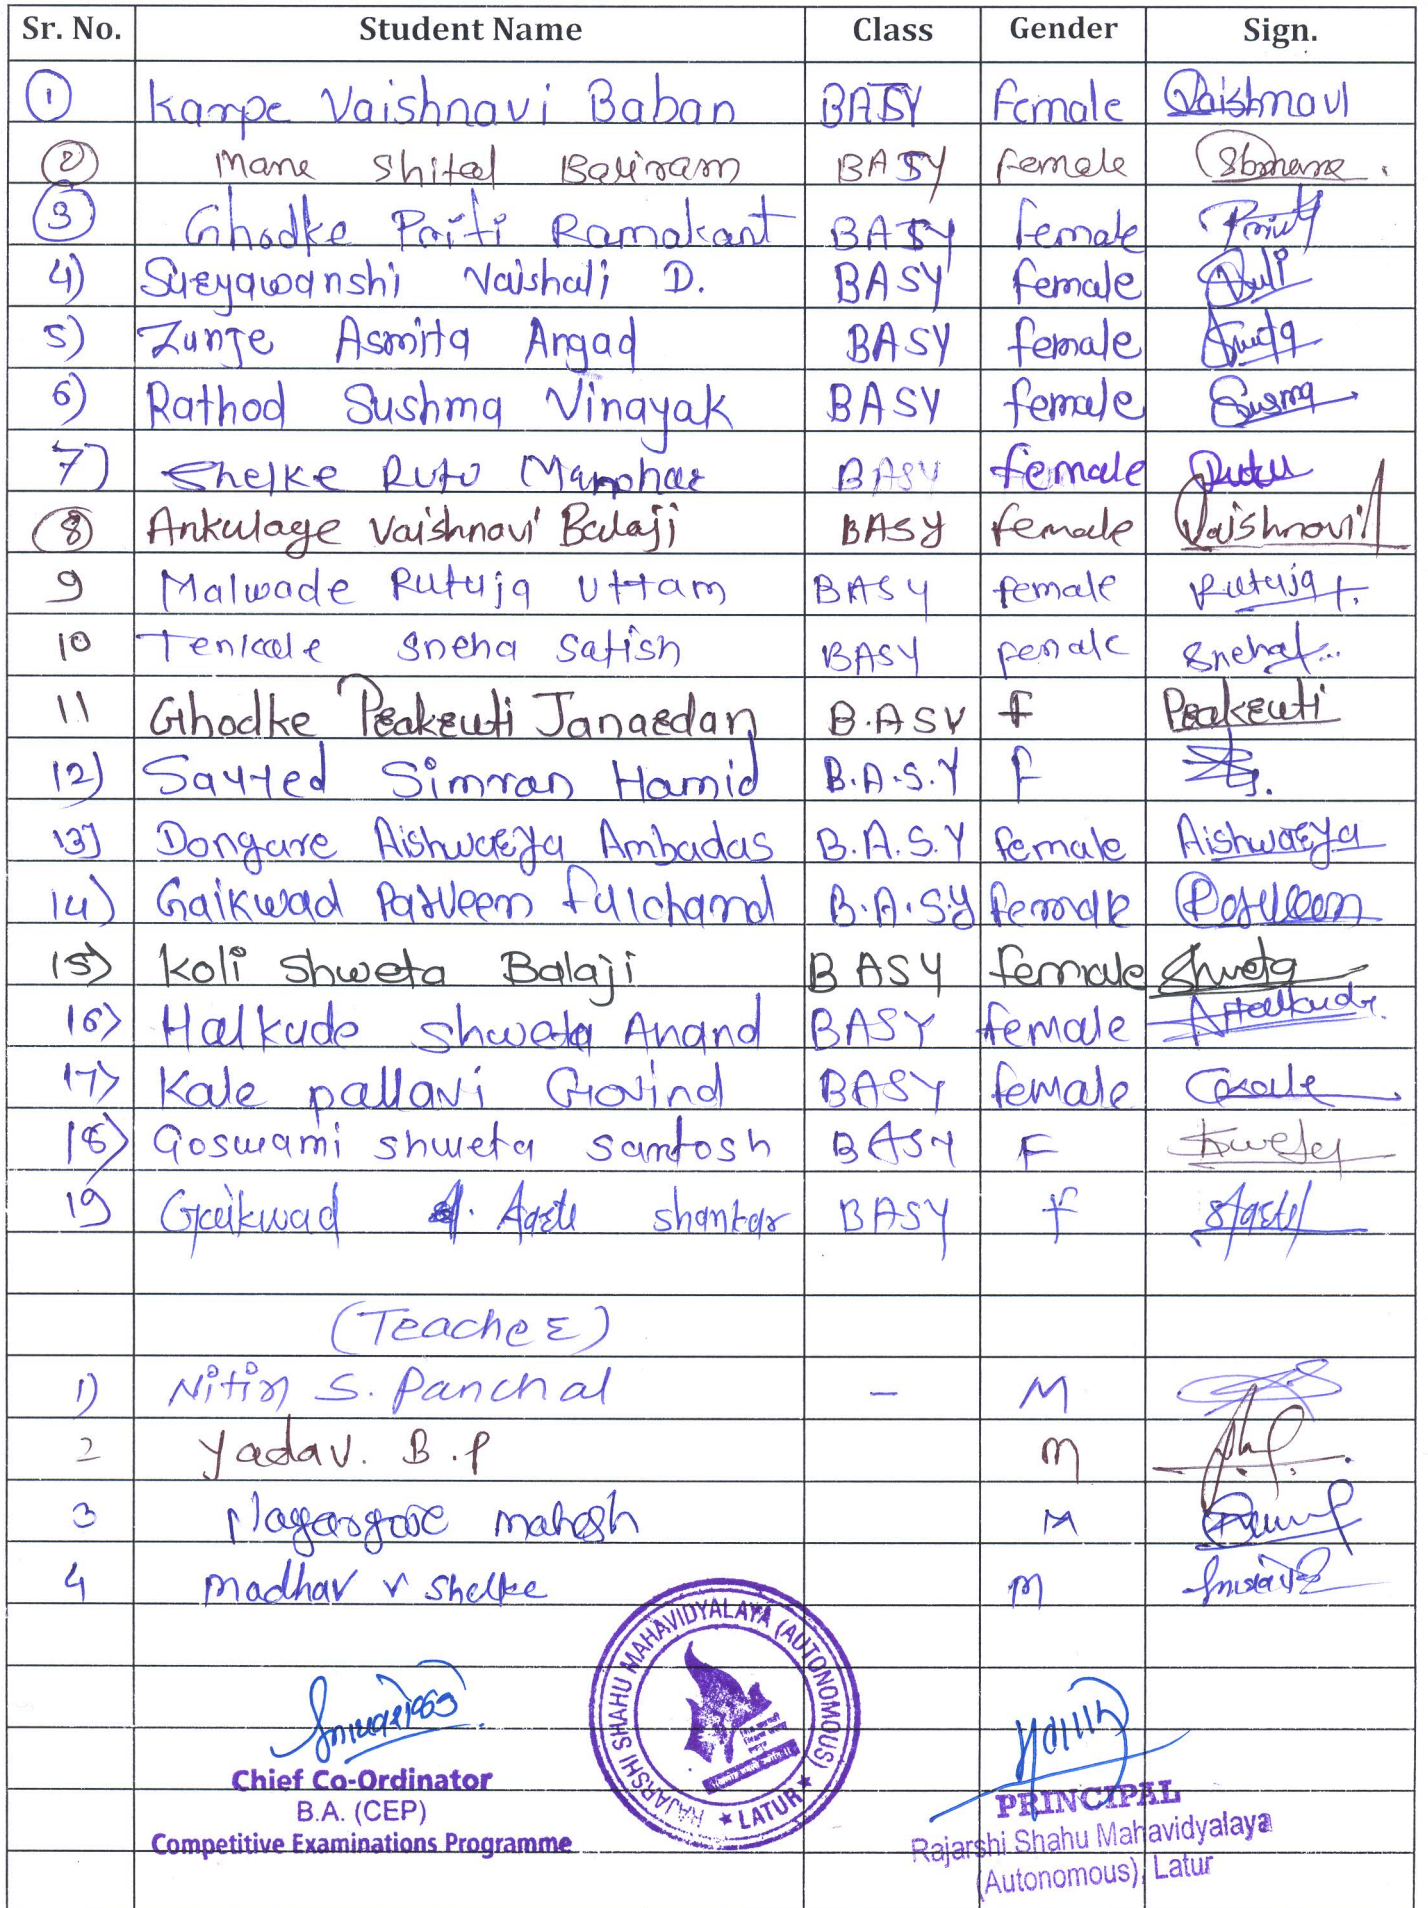 Sr. No. Student Name Class Gender Sign.
1 Karpe Vaishnavi Baban BASY Female Vaishnavi
2 Mane Shital Baliram BASY Female
3 Ghodke Priti Ramakant BASY female
4) Sueyawanshi Vaishali D. BASY female
5) Zunje Asmita Angad BASY female
6) Rathod Sushma Vinayak BASY female Susma
7) Shelke Rutu Manohar BASY female Rutu
8 Ankulage Vaishnavi Balaji BASY female Vaishnavi
9 Malwade Rutuja Uttam BASY female Rutuja
10 Tenkale Sneha Satish BASY female
11 Ghodke Peakeuti Janaedan B.ASY F Peakeuti
12) Sayyed Simran Hamid B.A.S.Y F
13) Dongare Aishwaeya Ambadas B.A.S.Y female Aishwaeya
14) Gaikwad Parveen Fulchand B.A.S.Y female Parveen
15) Koli Shweta Balaji B ASY female Shweta
16) Halkude Shweta Anand BASY female AHalkude
17) Kale Pallavi Govind BASY female
18) Goswami Shweta Santosh BASY F
19 Gaikwad Shankar BASY F
(Teacher)
1) Nitin S. Panchal – M
2 Yadav. B.P M
3 Nagargoje Mahesh M
4 Madhav V Shelke M
RAJARSHI SHAHU MAHAVIDYALAYA (AUTONOMOUS)
★ LATUR ★
Chief Co-Ordinator
B.A. (CEP)
Competitive Examinations Programme
PRINCIPAL
Rajarshi Shahu Mahavidyalaya
(Autonomous), Latur